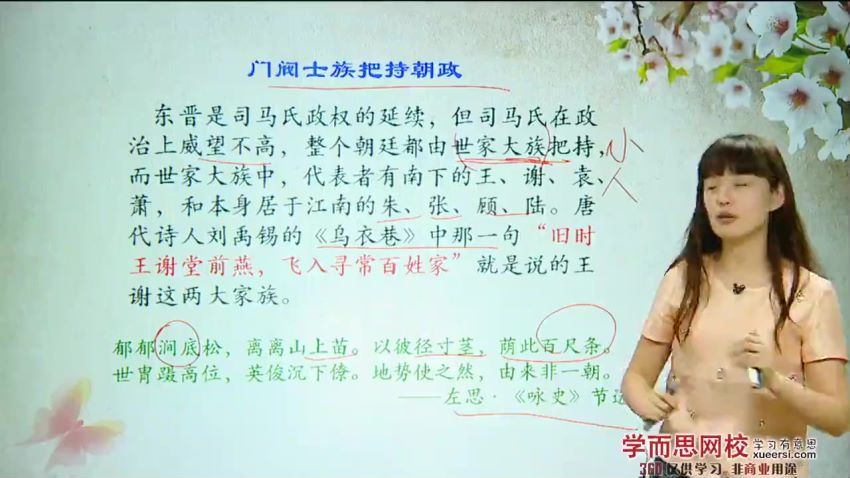 门阀士族把持朝政
东晋是司马氏政权的延续，但司马氏在政
治上威望不高，整个朝廷都由世家大族把持，
而世家大族中，代表者有南下的王、谢、袁、
萧，和本身居于江南的朱、张、顾、陆。唐
代诗人刘禹锡的《乌衣巷》中那一句“旧时
王谢堂前燕，飞入寻常百姓家”就是说的王
谢这两大家族。
小
人
郁郁涧底松，离离山上苗。以彼径寸茎，荫此百尺条。
世胄蹑高位，英俊沉下僚。地势使之然，由来非一朝。
——左思·《咏史》节选
学而思网校 学习有意思 xueersi.com
360 仅供学习 非商业用途